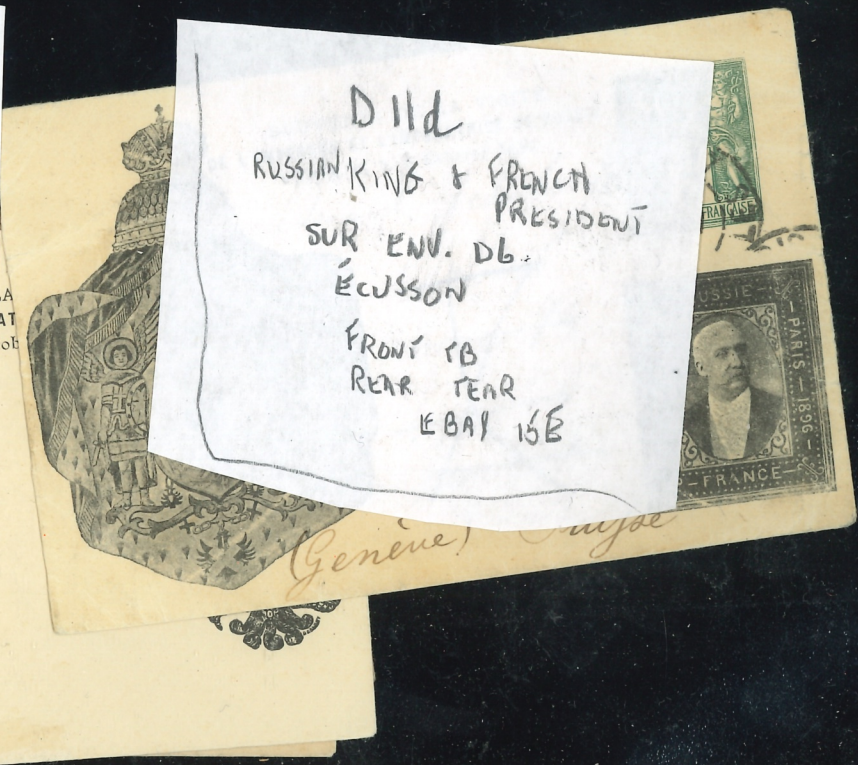 D 11d
RUSSIAN KING & FRENCH
PRESIDENT
SUR ENV. D6.
ÉCUSSON
FRONT TB
REAR TEAR
EBAY 15E
FRANÇAISE
RUSSIE
PARIS – 1896
FRANCE
(Genève) Suisse